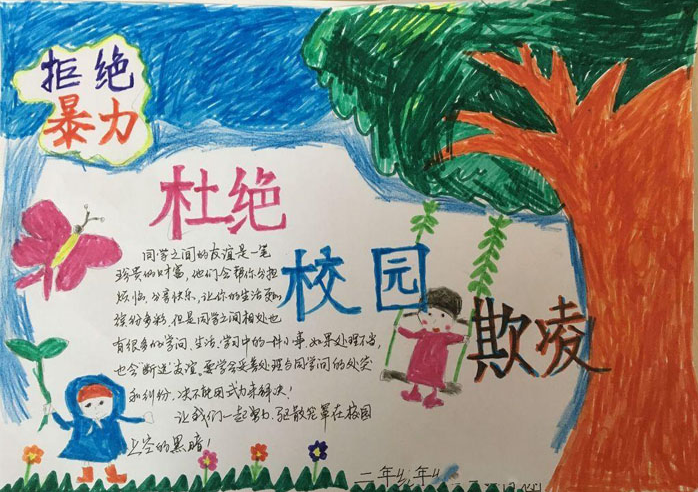 拒绝
暴力
杜绝
校园
欺凌
同学之间的友谊是一笔
珍贵的财富,他们会帮你分担
烦恼,分享快乐,让你的生活更加
缤纷多彩,但是同学之间相处也
有很多的学问、生活、学习中的一件小事,如果处理不当,
也会"断送"友谊。要学会妥善处理与同学间的冲突
和纠纷,决不能用武力来解决!
让我们一起努力,驱散笼罩在校园
上空的黑暗!
二年